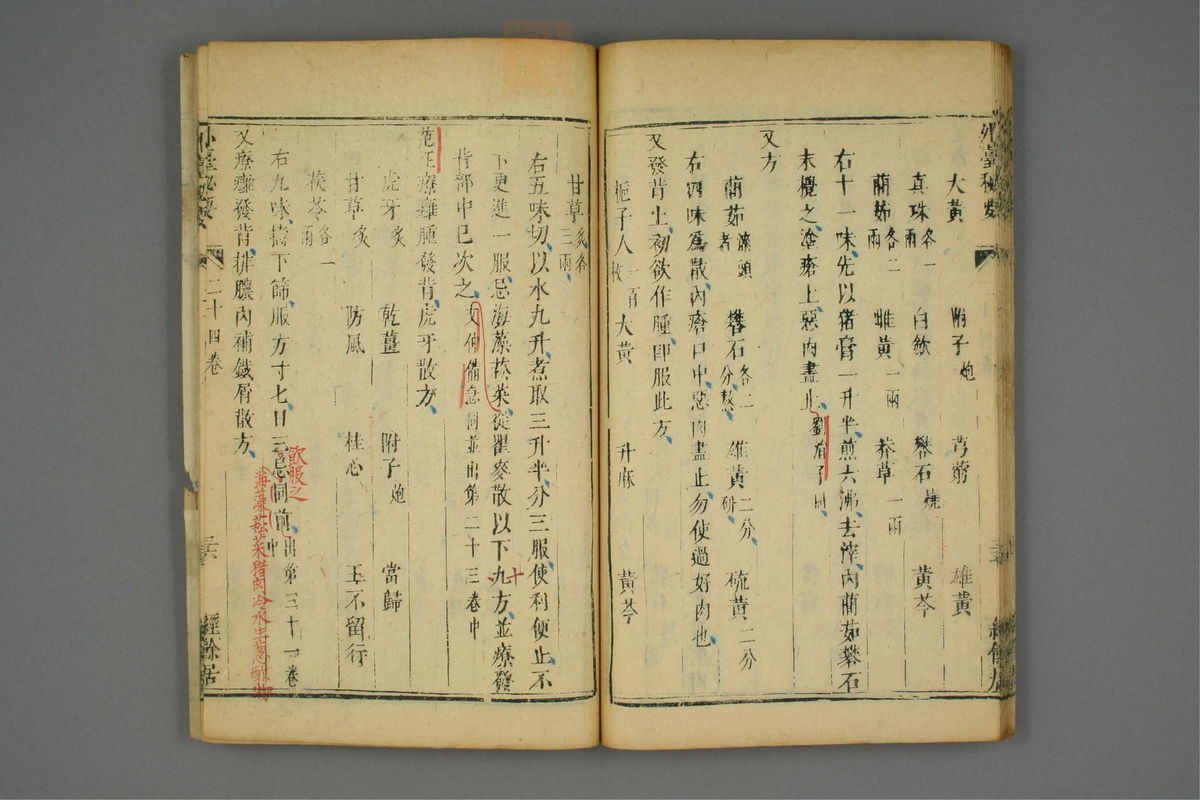 外臺秘要
大黃 附子炮 芎藭 雄黃
真珠各一兩 白歛 礬石燒 黃芩
䕡茹各二兩 雌黃一兩 莽草一兩
右十一味、先以猪膏一升半、煎六沸、去滓、內䕡茹礬石
末攪之、塗瘡上、惡肉盡止、劉涓子同
又方
䕡茹漆頭者 礬石各二分熬 雄黃二分研 硫黃二分
右四味爲散、內瘡口中、惡肉盡止、勿使過好肉也、
又發背上初欲作腫、即服此方、
梔子人一百枚 大黃 升麻 黃芩
甘草炙各三兩
右五味切、以水九升、煮取三升半、分三服、使利便止、不
下更進一服、忌海藻菘菜、從瞿麥散以下九方、並療發
十
背部中已次之、文仲備急同並出第二十三卷中
范汪療癰腫發背、虎牙散方、
虎牙炙 乾薑 附子炮 當歸
甘草炙 防風 桂心 王不留行
茯苓各一兩
右九味、擣下篩、服方寸七日三、忌同前、出第三十一卷中
飲服之
海藻菘菜猪肉冷水生葱酢物
又療癰發背、排膿內補鐵屑散方、
外臺秘要 二十四卷 三六 經餘居